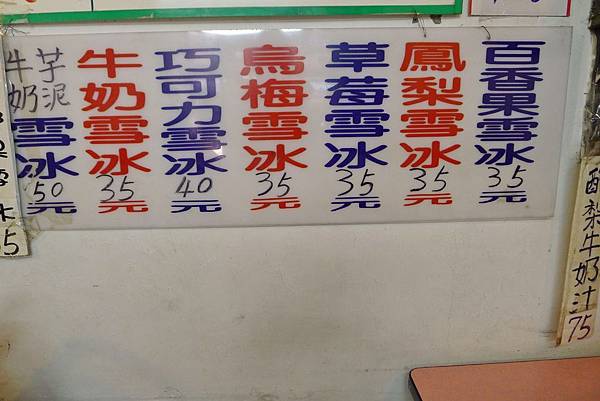 百香果雪冰35元
鳳梨雪冰35元
草莓雪冰35元
烏梅雪冰35元
巧可力雪冰40元
牛奶雪冰35元
芋泥牛奶雪冰50元
酪梨牛奶汁75
5